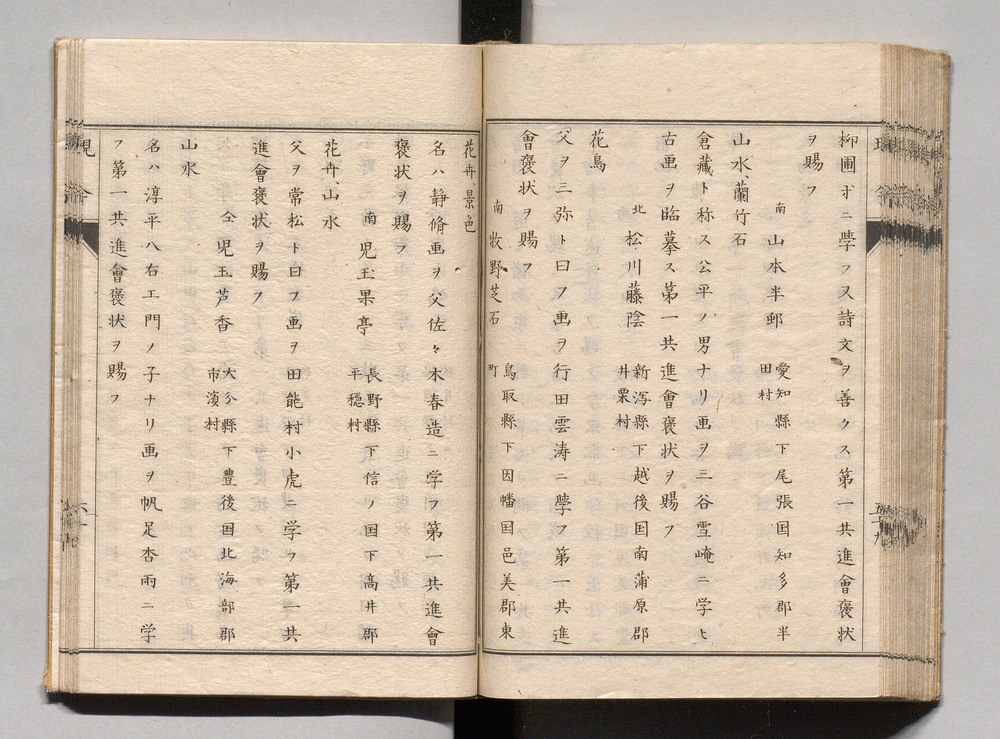 柳圃才ニ學フ又詩文ヲ善クス第一共進會褒状
ヲ賜フ
南 山本半邨 愛知縣下尾張国知多郡半
田村
山水、蘭竹石
倉藏ト称ス公平ノ男ナリ画ヲ三谷雪崦ニ学ヒ
古画ヲ臨摹ス第一共進會褒状ヲ賜フ
北 松川藤陰 新泻縣下越後国南蒲原郡
井栗村
花鳥
父ヲ三弥ト曰フ画ヲ行田雲涛ニ學フ第一共進
會褒状ヲ賜フ
南 牧野芝石 鳥取縣下因幡国邑美郡東
町
花卉景色
名ハ静脩画ヲ父佐々木春造ニ学フ第一共進會
褒状ヲ賜フ
南 児玉果亭 長野縣下信ノ国下高井郡
平穏村
花卉、山水
父ヲ常松ト曰フ画ヲ田能村小虎ニ学フ第一共
進會褒状ヲ賜フ
仝 児玉芦香 大分縣下豊後国北海部郡
市濱村
山水
名ハ淳平八右エ門ノ子ナリ画ヲ帆足杏雨ニ学
フ第一共進會褒状ヲ賜フ